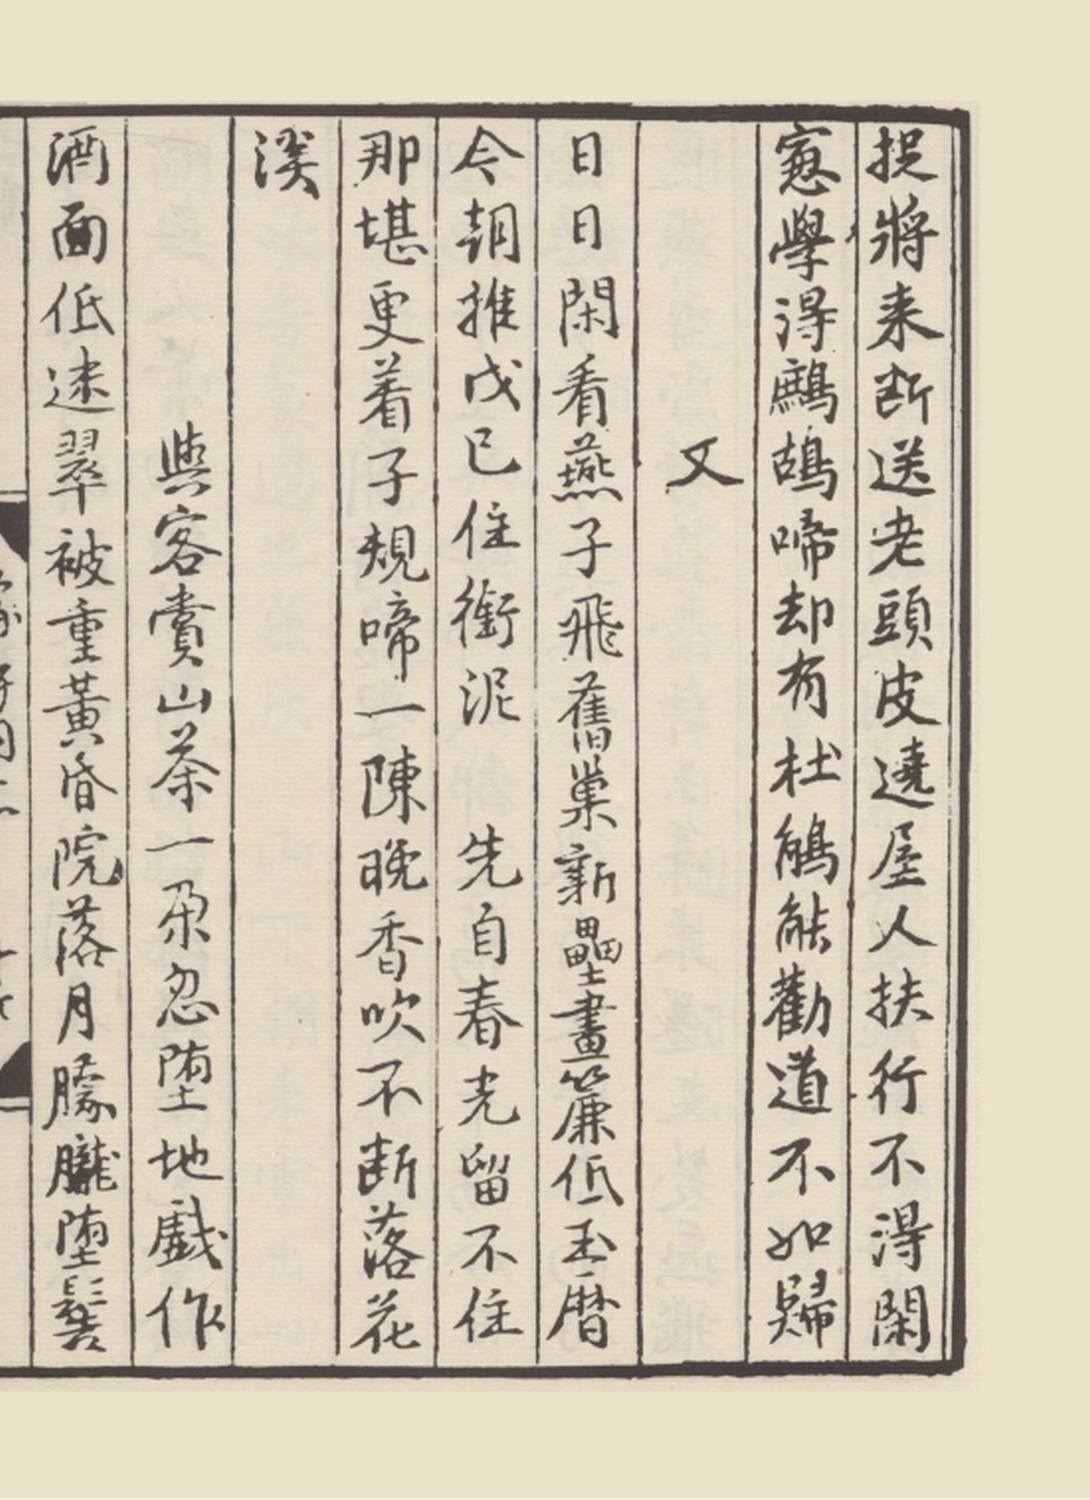 捉將来断送老頭皮遶屋人扶行不得閑
窓學得鷓鴣啼却有杜鵑能勸道不如歸
又
日日閑看燕子飛舊巢新壘畫簾低玉曆
今朝推戊巳住銜泥　先自春光留不住
那堪更着子規啼一陳晚香吹不断落花
溪
與客賞山茶一朶忽堕地戲作
酒面低迷翠被重黄昏院落月朦朧堕髻